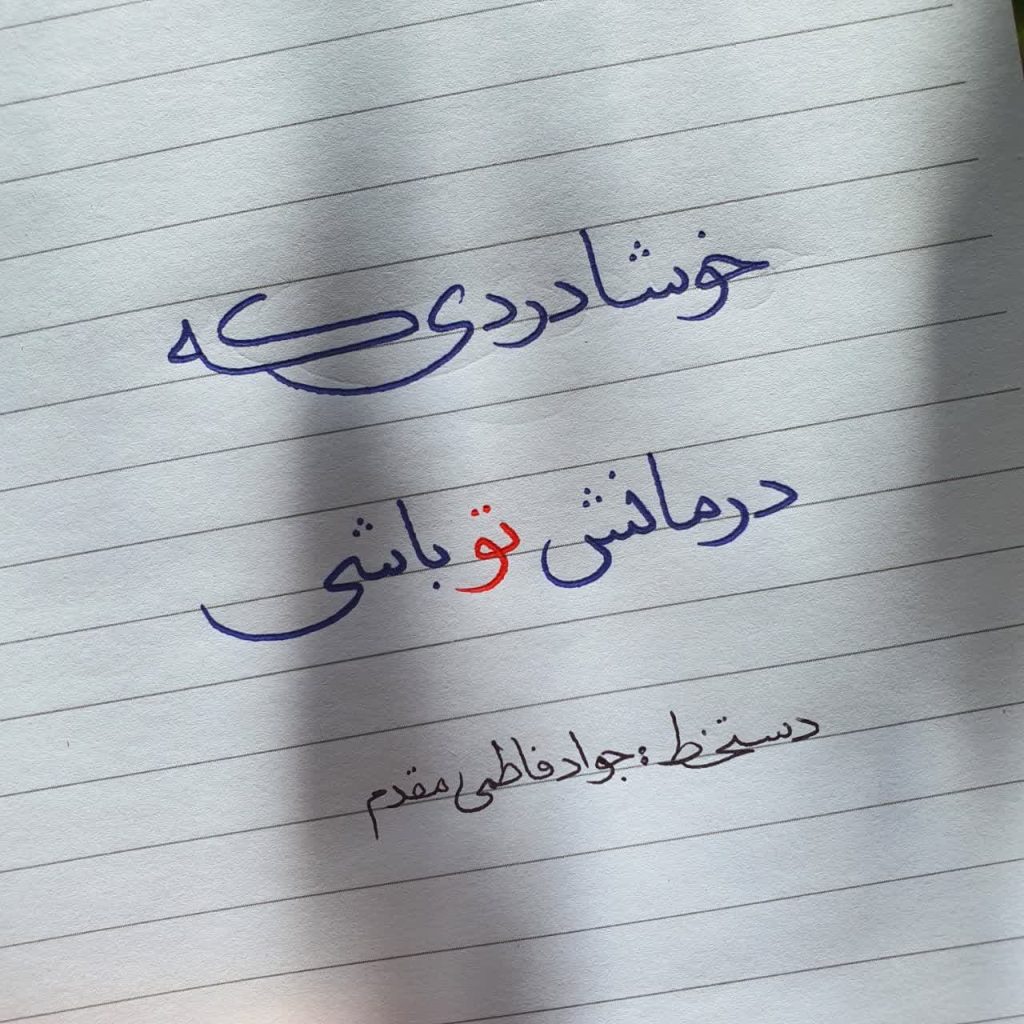 خوشا دردی که
درمانش تو باشی
دستخط : جواد فاطمی مقدم